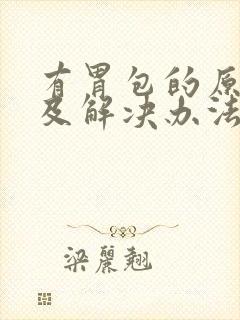 有胃包的原
及解决办法
梁丽翘